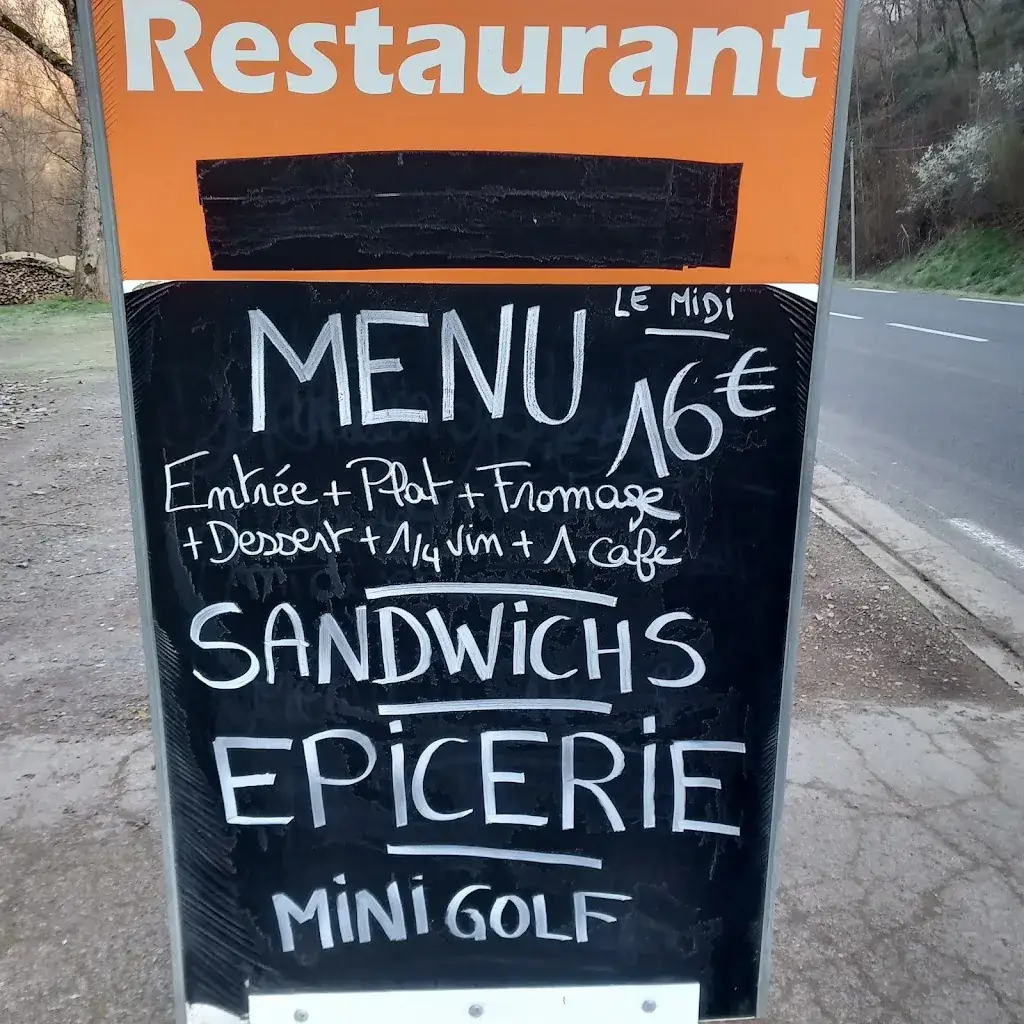 Restaurant
LE MIDI
MENU 16€
Entrée + Plat + Fromage
+ Dessert + 1/4 vin + 1 café
SANDWICHS
EPICERIE
MINI GOLF